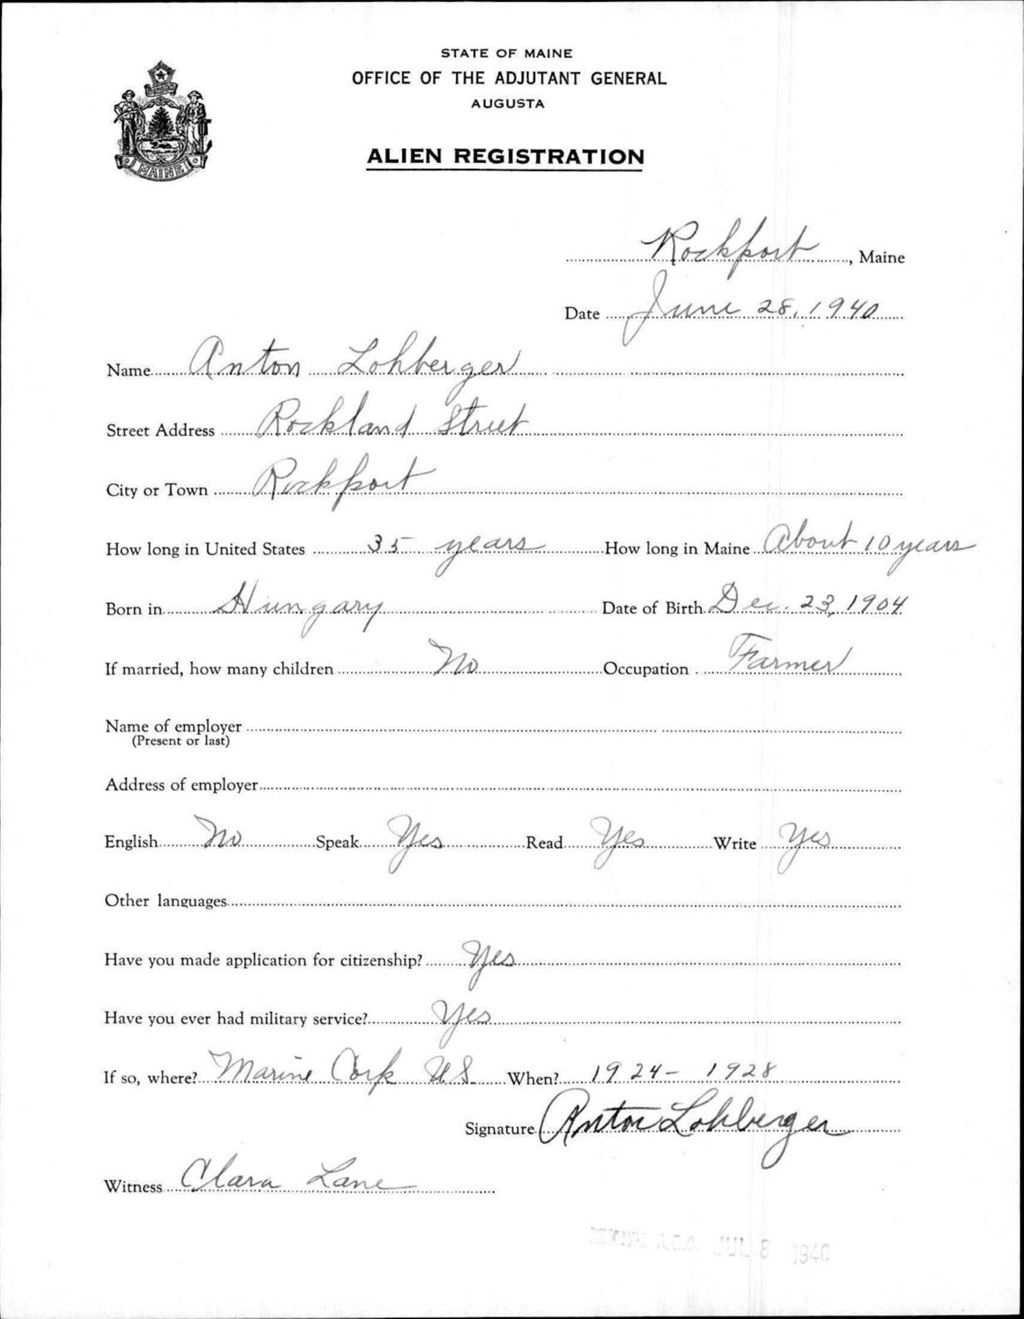 STATE OF MAINE
OFFICE OF THE ADJUTANT GENERAL
AUGUSTA
ALIEN REGISTRATION
MAINE
Rockport, Maine
Date June 28, 1940
Name Anton Lohberger
Street Address Rockland Street
City or Town Rockport
How long in United States 35 years How long in Maine About 10 years
Born in Hungary Date of Birth Dec. 23, 1904
If married, how many children No Occupation Farmer
Name of employer
(Present or last)
Address of employer
English No Speak Yes Read Yes Write Yes
Other languages
Have you made application for citizenship? Yes
Have you ever had military service? Yes
If so, where? Marine Corp U.S. When? 1924 - 1928
Signature Anton Lohberger
Witness Clara Lane
A.G.O. JUL 8 1940